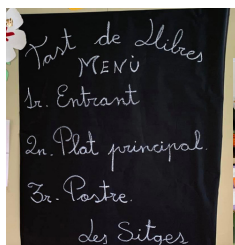 Tast de Llibres
MENÚ
1r. Entrant
2n. Plat principal.
3r. Postre.
Les Sitges